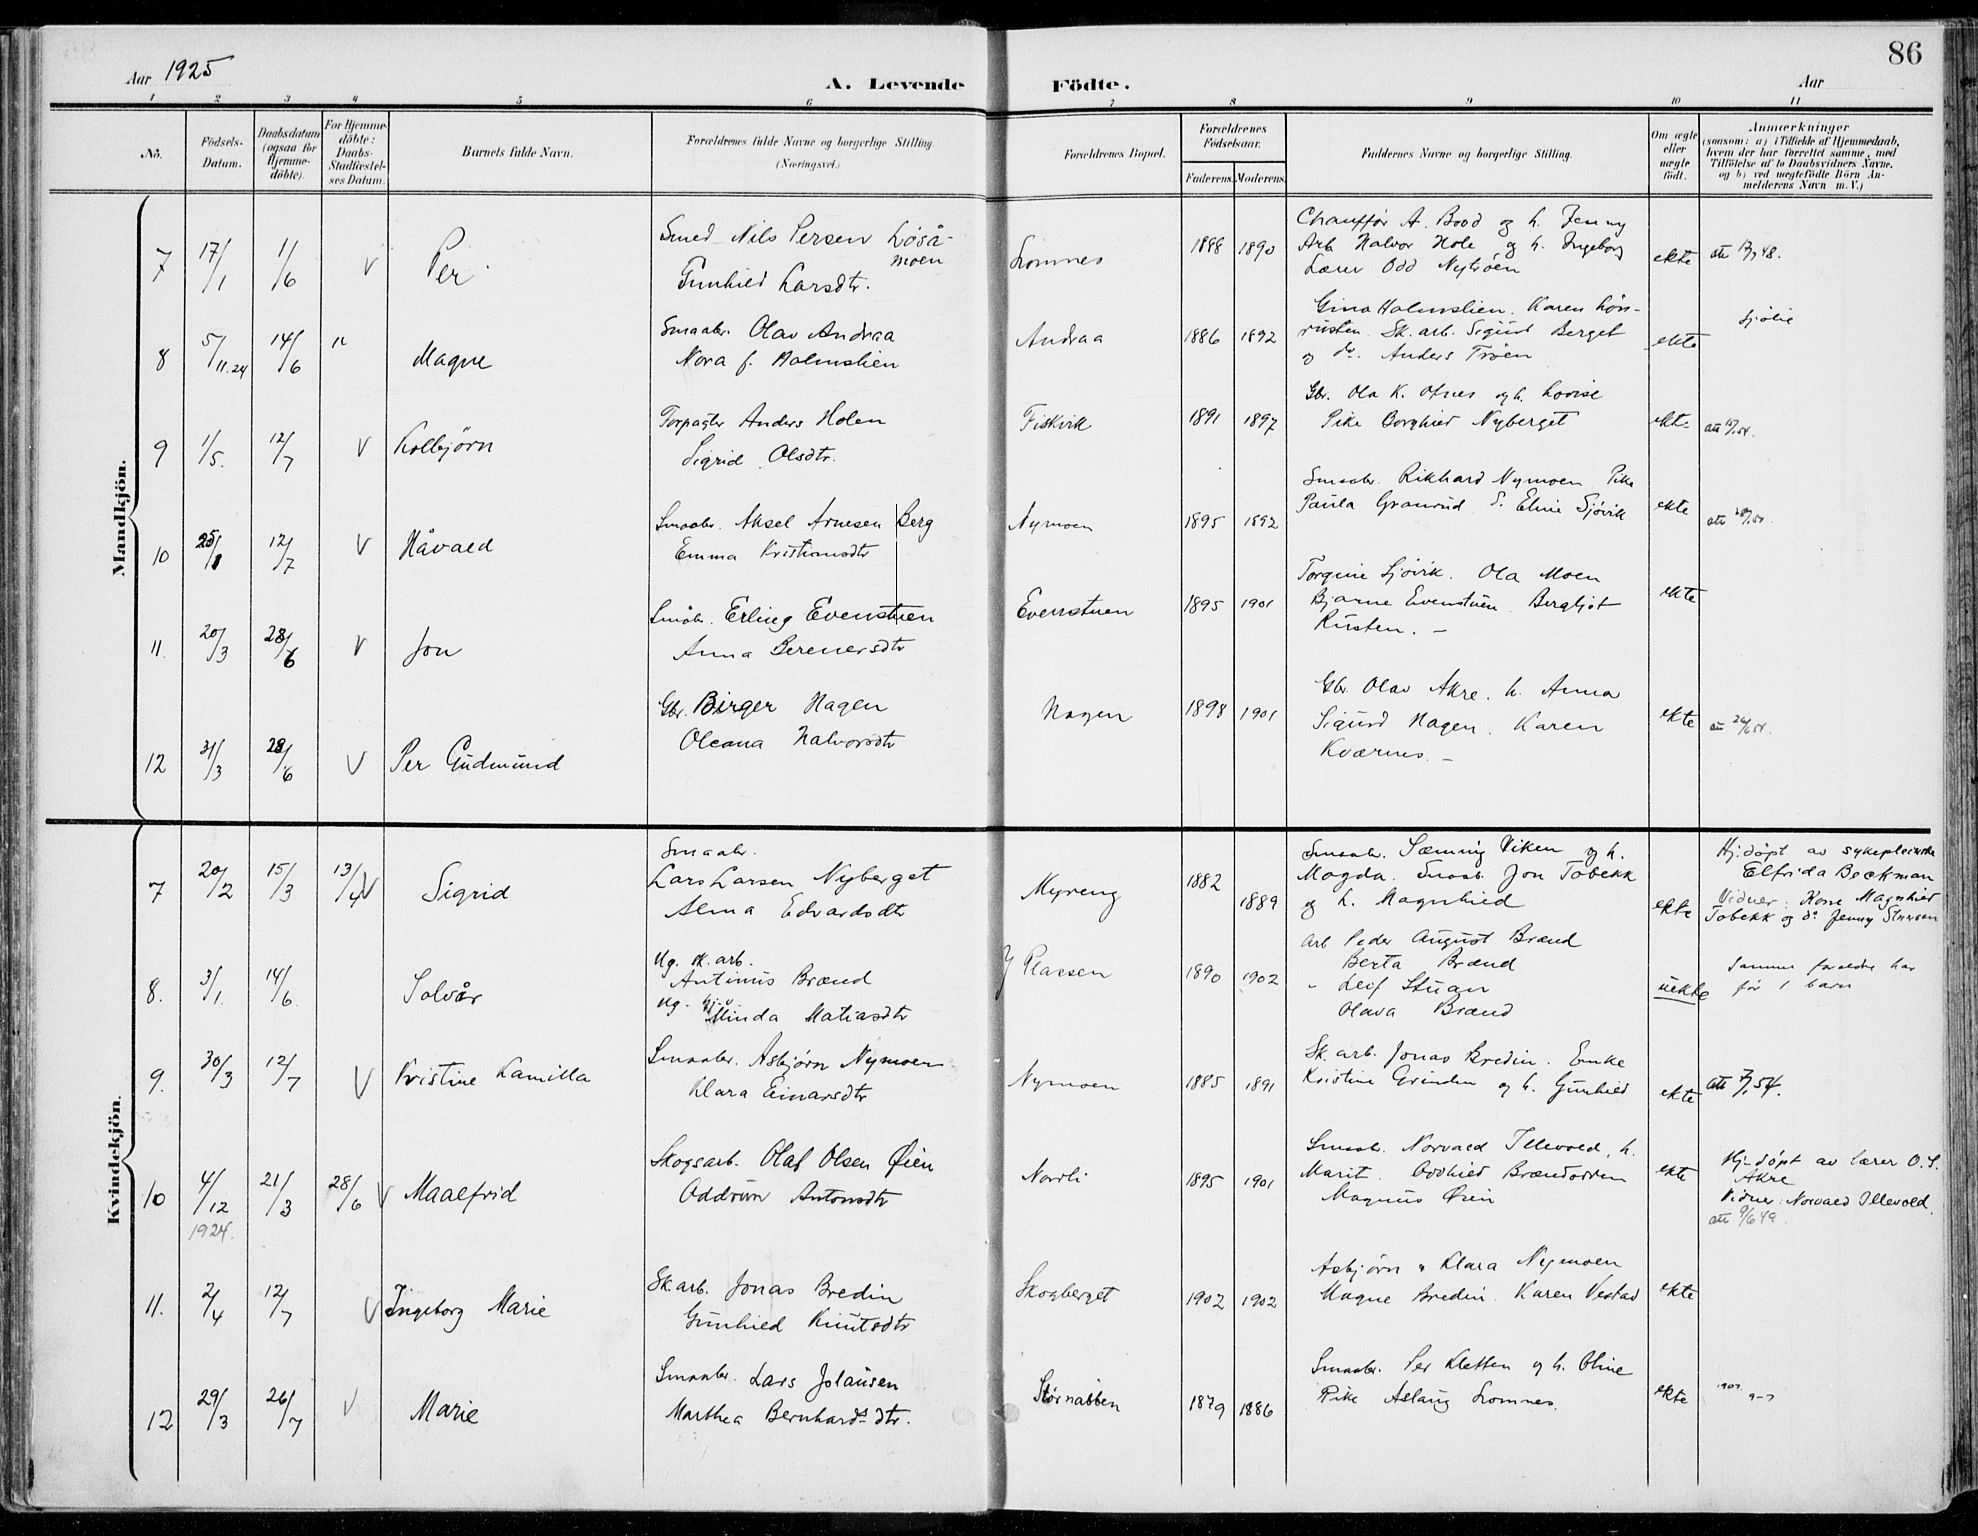 86
Aar 1925
A. Levende Födte.
Aar
1 2 3 4 5 6 7 8 9 10 11
No.
Födsels-
Datum.
Daabsdatum
(ogsaa for
Hjemme-
döbte).
For Hjemme-
döbte:
Daabs-
Stadfæstel-
ses Datum.
Barnets fulde Navn.
Forældrenes fulde Navne og borgerlige Stilling.
(Næringsvei.)
Forældrenes Bopæl.
Forældrenes
Födselsaar.
Faderens. Moderens.
Faddernes Navne og borgerlige Stilling.
Om ægte
eller
uægte
födt.
Anmærkninger
(saasom: a) i Tilfælde af Hjemmedaab,
hvem der har forrettet samme, med
Tilföielse af to Daabsvidners Navne,
og b) ved uægtefödte Börn An-
melderens Navn m. V.)
Mandkjön.
7 17/1 1/6 V Per
Smed Nils Persen Løså-
moen
Gunhild Larsdtr.
Lomnes 1888 1890
Chauffør A. Bood og h. Jenny
Arb. Halvor Hole og h. Ingeborg
Lærer Odd Nytrøen
ekte
8 5/11.24 14/6 " Magne
Smaabr. Olav Andraa
Nora f. Holmslien
Andraa 1886 1892
Gina Holmslien. Karen Løn-
rusten. Sk.arb. Sigurd Berget
og do. Anders Trøen
ekte
Sjølie
9 1/5. 12/7 V Kolbjørn
Forpagter Anders Holen
Sigrid Olsdtr.
Fiskvik 1891 1897
Gbr. Ola K. Ofnes og h. Lovise
Pike Borghild Nyberget
ekte
10 25/1 12/7 V Håvald
Smaabr. Aksel Arnesen Berg
Emma Kristiansdtr
Nymoen 1895 1892
Smaabr. Rikhard Nymoen Pike
Paula Granrud. S. Eline Sjøvik
ekte
11. 20/3 28/6 V Jon
Småbr. Erling Evenstuen
Anna Berenersdtr
Evenstuen 1895 1901
Torgine Sjøvik. Ola Moen
Bjarne Evenstuen. Bergljot
Rusten. –
ekte
12 31/3 28/6 V Per Gudmund
Gbr. Birger Hagen
Oleana Halvorsdtr
Hagen 1898 1901
Gbr. Olav Akre. h. Anna
Sigurd Hagen. Karen
Kværnes. –
ekte
Kvindekjön.
7 20/2 15/3 13/4 V Sigrid
Smaabr.
Lars Larsen Nyberget
Alma Edvardsdtr
Myreng 1882 1889
Smaabr. Sæming Viken og h.
Magda. Smaab. Jon Tobekk
og h. Magnhild
ekte
Hj.døpt av sykepleierske
Elfrida Beckman
Vidner: Kone Magnhild
Tobekk og do Jenny Stensen
8. 3/1. 14/6. Solvår
Ug. sk.arb.
Antinus Brænd
Ug. Minda Matiasdtr
Plassen 1890 1902
Arb Peder August Brænd
Berta Brænd
" Leif Stuan
Olava Brænd
uekte
Samme foreldre har
før 1 barn
9. 30/3 12/7 V Kristine Kamilla
Smaabr. Asbjørn Nymoen
Klara Einarsdtr
Nymoen 1885 1891
Sk.arb. Jonas Bredin. Enke
Kristine Grinden og h. Gunhild
ekte
10 4/12 21/3 28/6 V Maalfrid
1924.
Skogsarb. Olaf Olsen Øien
Oddrun Antonsdtr
Nordli 1895 1901
Smaab. Norvald Illevold, h.
Marit. Oddhild Brændodden
Magnus Øien
ekte
Hj.døpt av lærer O. S.
Akre
Vidner: Norvald Illevold.
att 9/6 49.
11. 2/4 12/7 V Ingeborg Marie
Sk.arb. Jonas Bredin
Gunhild Knutsdtr
Skogberget 1902 1902
Asbjørn " Klara Nymoen
Magne Bredin. Karen Vestad
ekte
12 29/3 26/7 V Marie
Smaabr. Lars Jolausen
Marthea Bernhardsdtr.
Størnabben 1879 1886
Smaabr. Per Kletten og h. Oline
Pike Aslaug Lomnes.
ekte